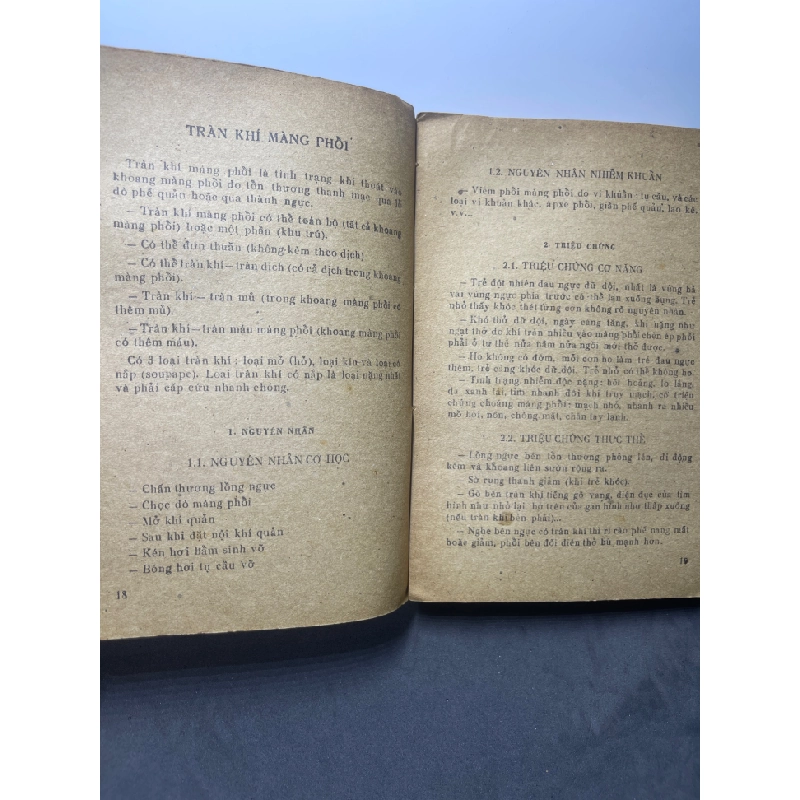 TRÀN KHÍ MÀNG PHỔI
Tràn khí màng phổi là tình trạng khí thoát vào
khoang màng phổi do tổn thương thanh mạc qua lỗ
dò phế quản hoặc qua thành ngực.
— Tràn khí màng phổi có thể toàn bộ (tất cả khoang
màng phổi) hoặc một phần (khu trú).
— Có thể đơn thuần (không kèm theo dịch)
— Có thể tràn khí — tràn dịch (có cả dịch trong khoang
màng phổi).
— Tràn khí — tràn mủ (trong khoang màng phổi có
thêm mủ)
— Tràn khí — tràn máu màng phổi (khoang màng phổi
có thêm máu).
Có 3 loại tràn khí: loại mở (hở), loại kín và loại có
nắp (soupape). Loại tràn khí có nắp là loại nặng nhất
và phải cấp cứu nhanh chóng.
1. NGUYÊN NHÂN
1.1. NGUYÊN NHÂN CƠ HỌC
Chấn thương lồng ngực
— Chọc dò màng phổi
Mở khí quản
— Sau khi đặt nội khí quản
— Kén hơi bẩm sinh vỡ
— Bóng hơi tụ cầu vỡ
18
1.2. NGUYÊN NHÂN NHIỄM KHUẨN
— Viêm phổi màng phổi do vi khuẩn tụ cầu, và các
loại vi khuẩn khác, apxe phổi, giãn phế quản, lao kê,
v.v...
2. TRIỆU CHỨNG
2.1. TRIỆU CHỨNG CƠ NĂNG
— Trẻ đột nhiên đau ngực dữ dội, nhất là vùng bả
vai vùng ngực phía trước có thể lan xuống bụng. Trẻ
nhỏ thấy khóc thét từng cơn không rõ nguyên nhân.
— Khó thở dữ dội, ngày càng tăng, thì nặng như
ngạt thở do khí tràn nhiều vào màng phổi chèn ép phổi
phải ở tư thế nửa nằm nửa ngồi mới thở được.
— Ho không có đờm, mỗi cơn ho làm trẻ đau ngực
thêm, trẻ càng khóc dữ dội. Trẻ nhỏ có thể không ho.
— Tình trạng nhiễm độc nặng: hốt hoảng, lo lắng,
da xanh tái, tím nhanh đôi khi trụy mạch, có triệu
chứng choáng màng phổi: mạch nhỏ, nhanh ra nhiều
mồ hôi, nôn, chóng mặt, chân tay lạnh.
2.2. TRIỆU CHỨNG THỰC THỂ
— Lồng ngực bên tổn thương phồng lên, di động
kém và khoang liên sườn rộng ra.
Sờ rung thanh giảm (khi trẻ khóc).
— Gõ bên tràn khí tiếng gõ vang, diện đục của tim
hình như nhỏ lại, bờ trên của gan hình như thấp xuống
(nếu tràn khí bên phải)...
— Nghe bên ngực có tràn khí thì rì rào phế nang mất
hoặc giảm, phổi bên đối diện thở bù mạnh hơn.
19